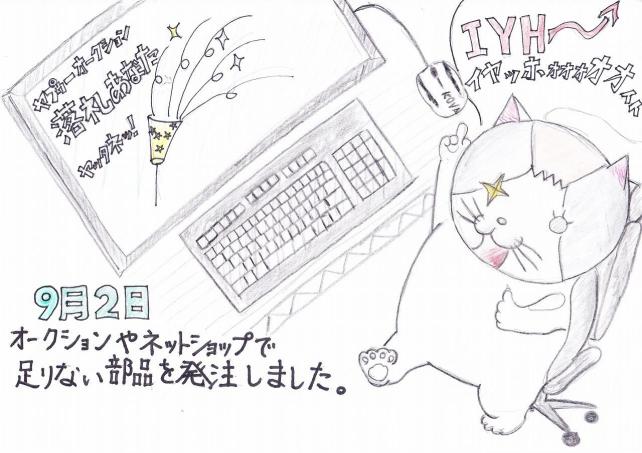 ヤプリーオークション
落札あなた
ヤッタネッ!
IYH
イヤッホォォォオオォォ
9月2日
オークションやネットショップで
足りない部品を発注しました。